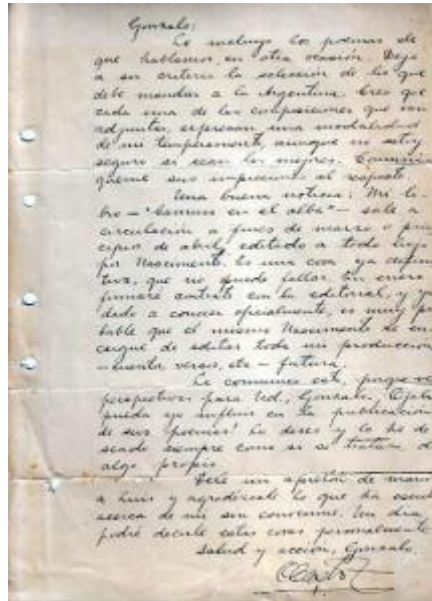 Gonzalo:
Le incluyo los poemas de
que hablamos en otra ocasión. Dejo
a su criterio la selección de los que
debe mandar a la Argentina. Creo que
cada una de las composiciones que van
adjuntas, expresan una modalidad
de mi temperamento, aunque no estoy
seguro si sean las mejores. Comuní
queme sus impresiones al respecto.
Una buena noticia: Mi li-
bro — "Caminos en el alba" — sale a
circulación a fines de marzo o prin
cipios de abril, editado a todo lujo
por Nascimento. Es una cosa ya defini
tiva, que no puede fallar. En enero
firmaré contrato con la editorial, y
dado a conocer oficialmente, es muy pro
bable que el mismo Nascimento se en
cargue de editar toda mi producción
— cuentos, versos, etc — futura.
Le comunico esto, porque veo
perspectivas para Ud., Gonzalo. Ojalá
pueda yo influir en la publicación
de sus poemas! Lo deseo y lo he de
seado siempre como si se tratara de
algo propio.
Dele un apretón de manos
a Luis y agradézcale lo que ha escrito
acerca de mí sin conocerme. Un día
podré decirle estas cosas personalmente
Salud y acción, Gonzalo.